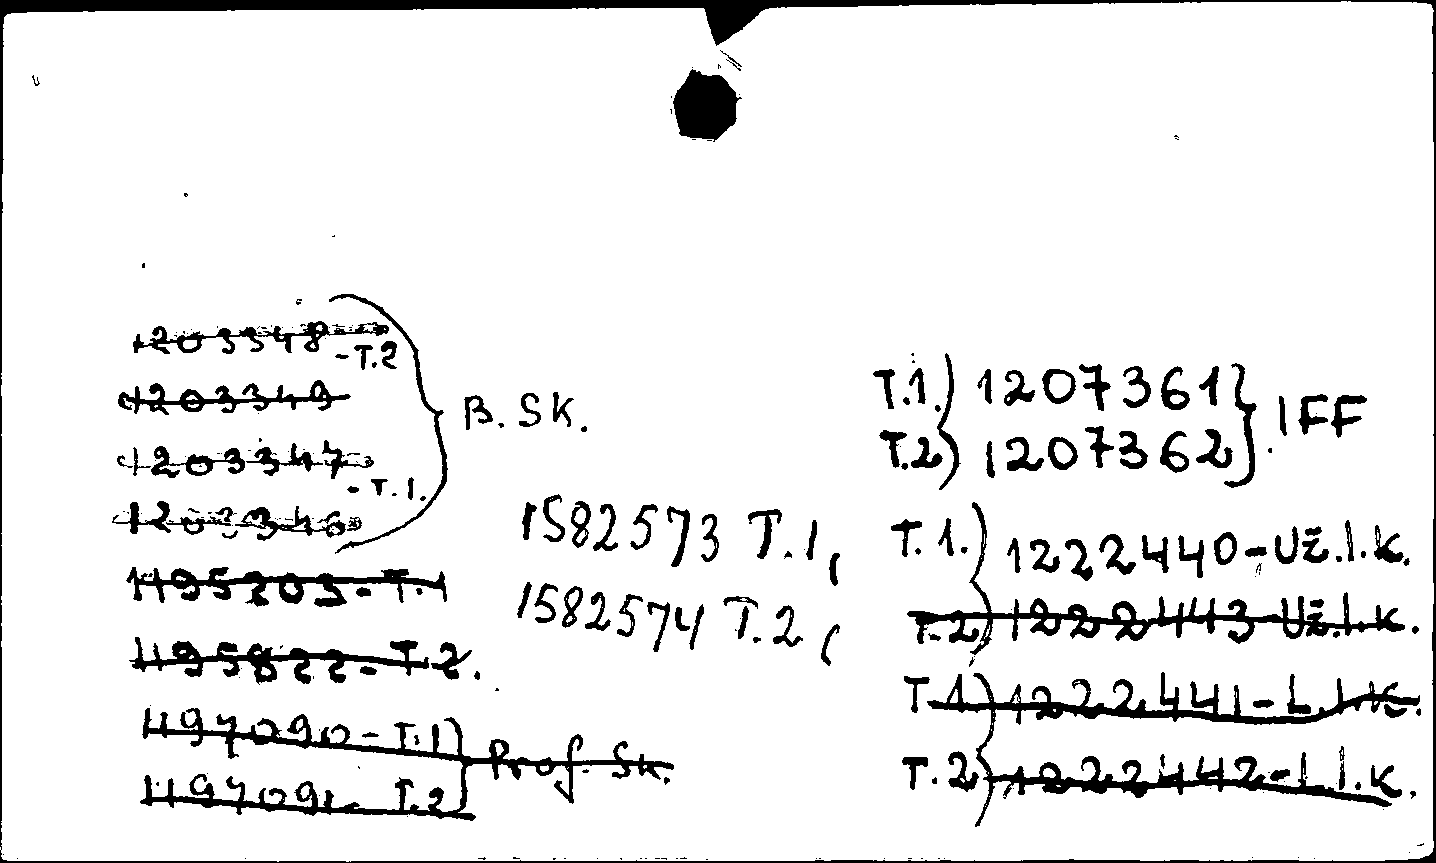 1203348 - T.2
1203349
1203347 - T.1.
1203346
B. SK.
1195203 - T.1
1195822 - T.2.
1197090 - T.1
1197091 - T.2
Prof. Sk.
1582573 T.1,
1582574 T.2,
T.1.) 1207361
T.2) 1207362
IFF
T.1.) 1222440 - Už.l.k.
T.2) 1222443 - Už.l.k.
T.1) 1222441 - L.l.k.
T.2) 1222442 - L.l.k.